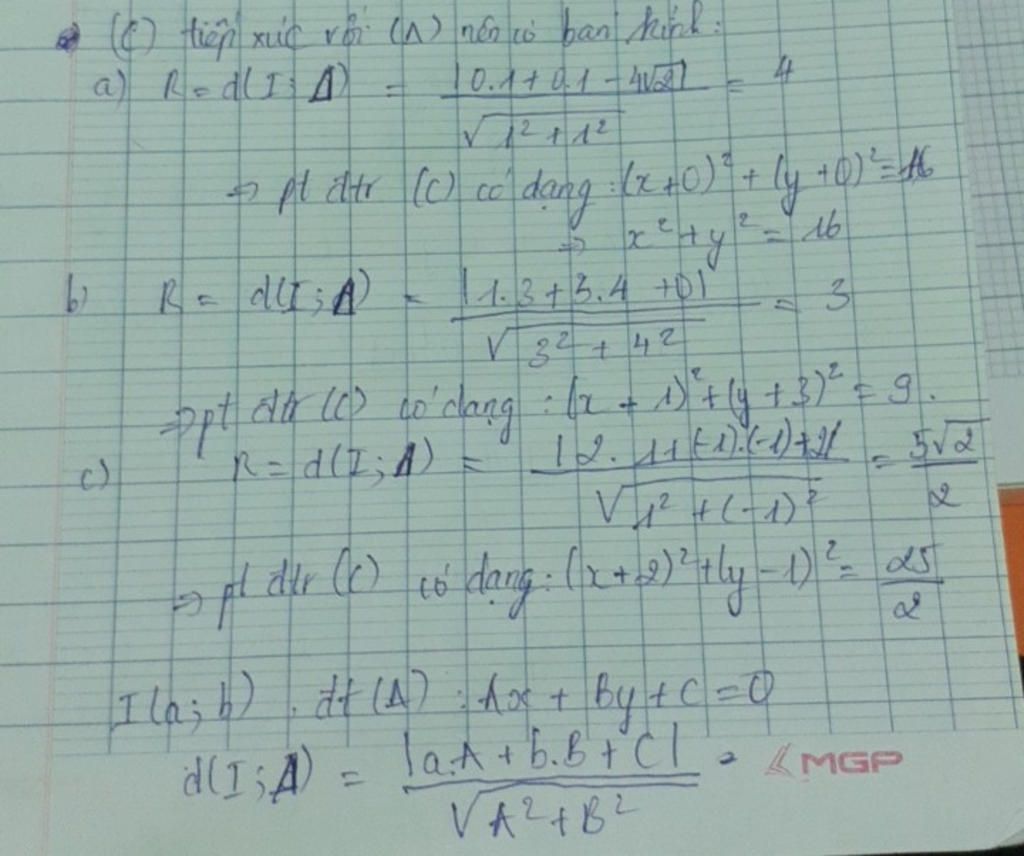 (C) tiếp xúc với (Δ) nên có bán kính:
a) R = d(I; Δ) = |0.1 + 0.1 - 4√2| / √(1² + 1²) = 4
⇒ pt đtr (C) có dạng : (x+0)² + (y+0)² = 16
⇒ x² + y² = 16
b) R = d(I; Δ) = |1.3 + 3.4 + 0| / √(3² + 4²) = 3
⇒ pt đtr (C) có dạng : (x + 1)² + (y + 3)² = 9.
c) R = d(I; Δ) = |2.1 + (-1).(-1) + 2| / √(1² + (-1)²) = 5√2 / 2
⇒ pt đtr (C) có dạng : (x+2)² + (y - 1)² = 25 / 2
I(a; b) . đt (Δ) : Ax + By + C = 0
d(I; Δ) = |a.A + b.B + C| / √(A² + B²)
MGP